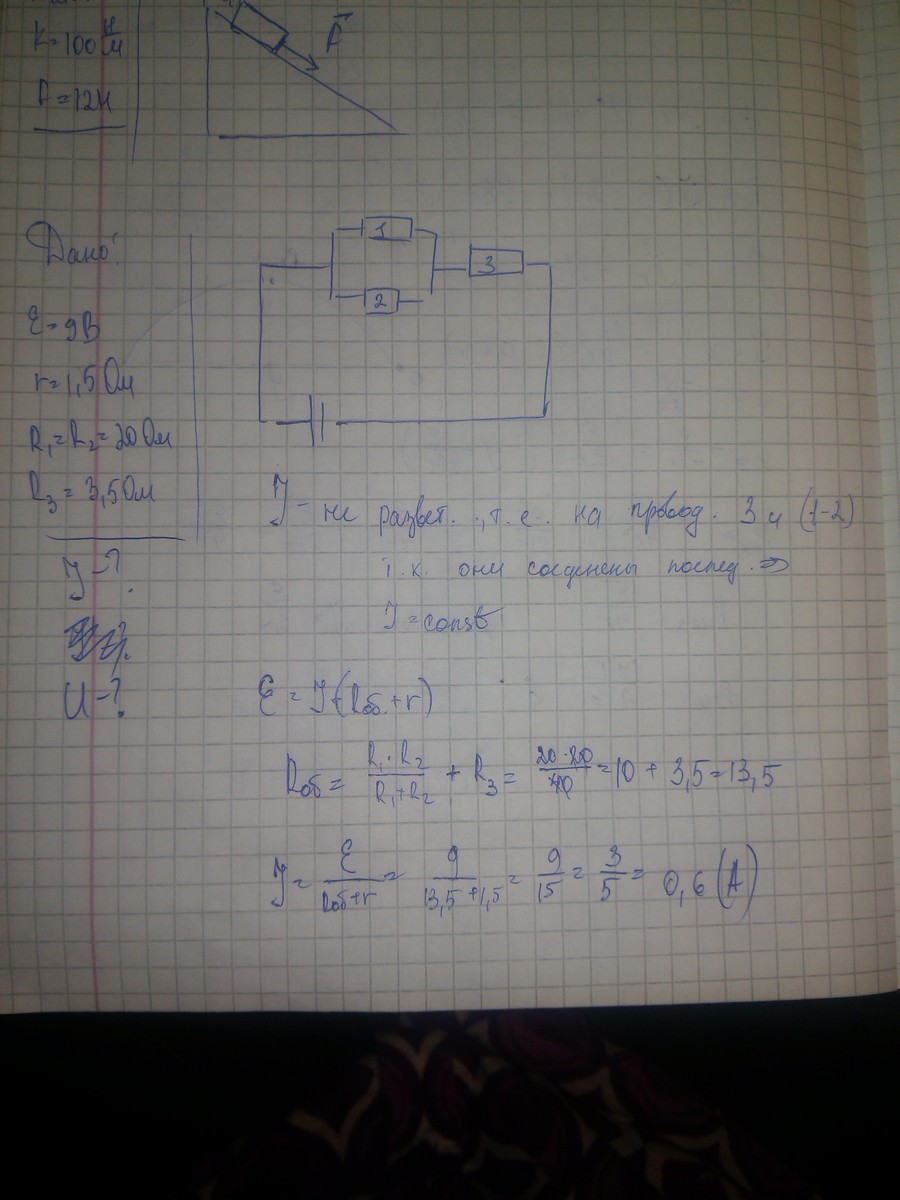 K=100 Н/м
F=12Н
F
1
2
3
Дано:
Ɛ=9В
r=1,5 Ом
R₁=R₂=20 Ом
R₃=3,5 Ом
J-?
U-?
J - не развет., т.е. на провод. 3 и (1-2)
т.к. они соединены послед. ⇒
J=const
Ɛ=J(Rоб+r)
Rоб = R₁·R₂/R₁+R₂ + R₃ = 20·20/40 = 10 + 3,5 = 13,5
J = Ɛ/Rоб+r = 9/13,5+1,5 = 9/15 = 3/5 = 0,6 (А)